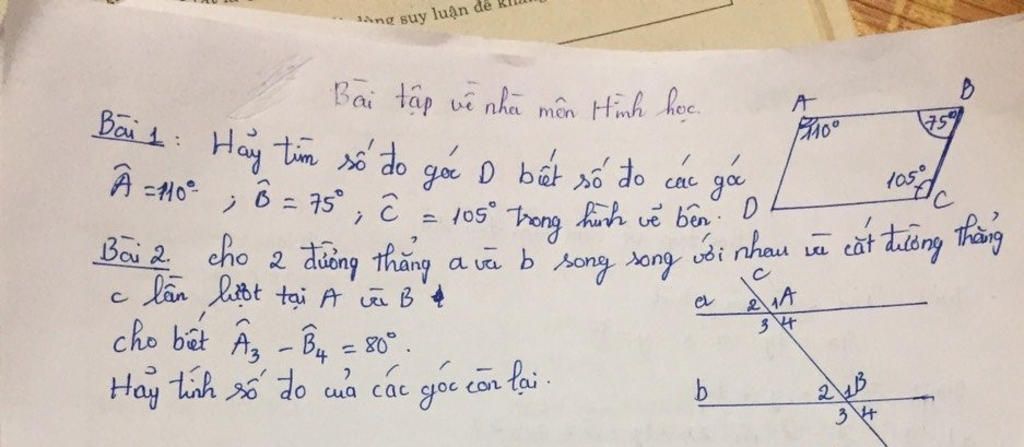 dàng suy luận để
Bài tập về nhà môn Hình học.
Bài 1 : Hãy tìm số đo góc D biết số đo các góc
Â = 110° ; B̂ = 75° ; Ĉ = 105° trong hình vẽ bên.
A
B
110°
75°
105°
D
C
Bài 2. cho 2 đường thẳng a và b song song với nhau và cắt đường thẳng
c lần lượt tại A và B
cho biết Â3 - B̂4 = 80°.
Hãy tính số đo của các góc còn lại.
c
a 2 1 A
3 4
b 2 1 B
3 4